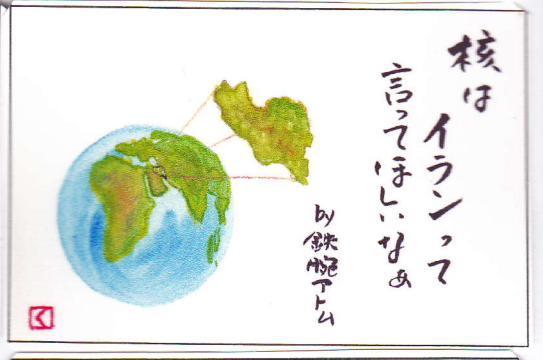 核は
イランって
言ってほしいなぁ
by
鉄腕アトム
く